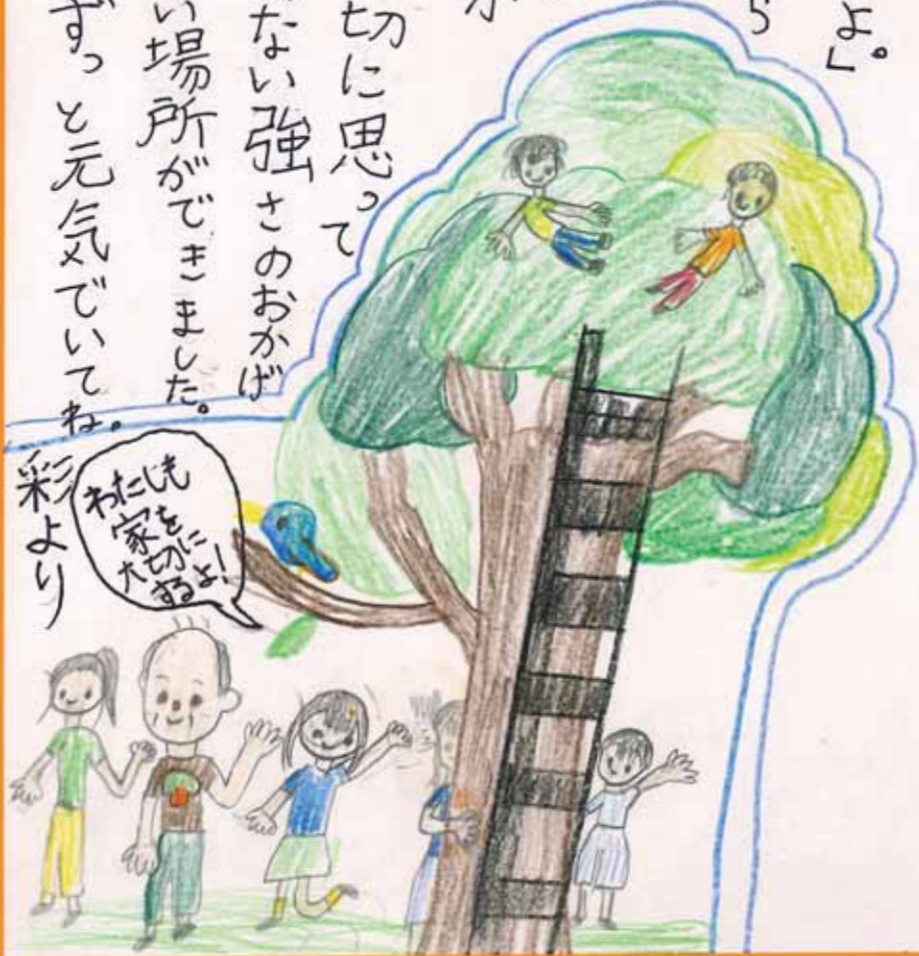 よ」。
ら
切に思って
ない強さのおかげ
い場所ができました。
ずっと元気でいてね。
彩より
わたしも
家を
大切に
するよ!